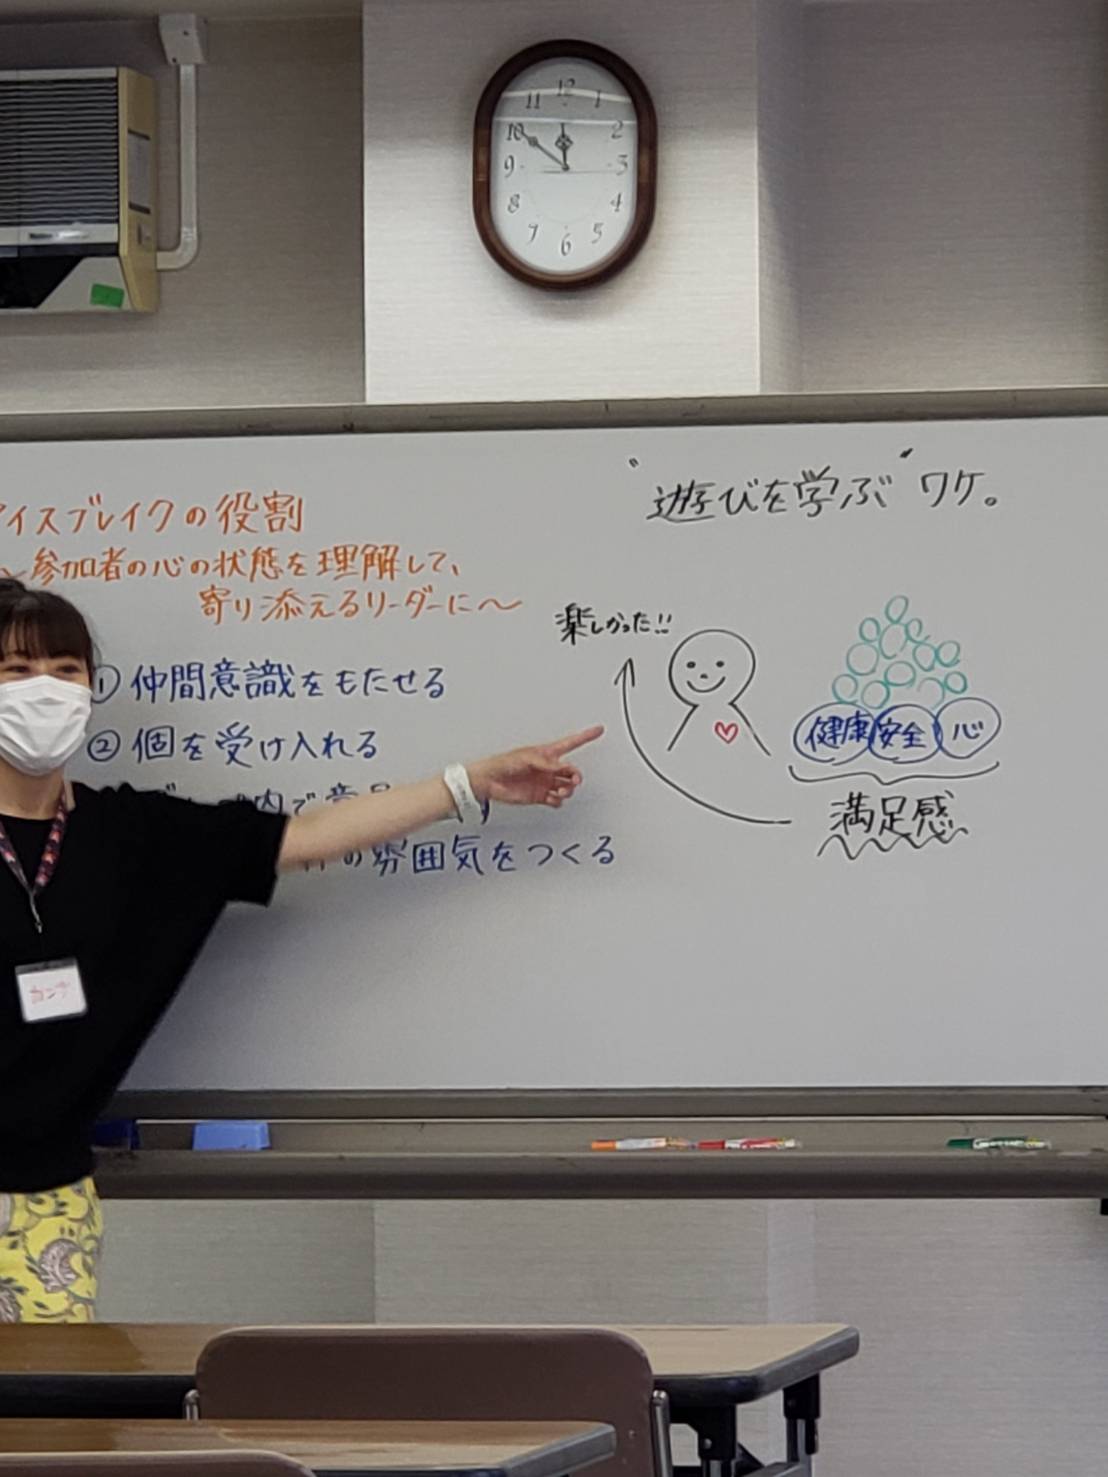 12
11 1
10 2
9 3
8 4
7 5
6
アイスブレイクの役割
～参加者の心の状態を理解して、
寄り添えるリーダーに～
① 仲間意識をもたせる
② 個を受け入れる
内で意
の雰囲気をつくる
"遊びを学ぶ"ワケ。
楽しかった!!
健康 安全 心
満足感